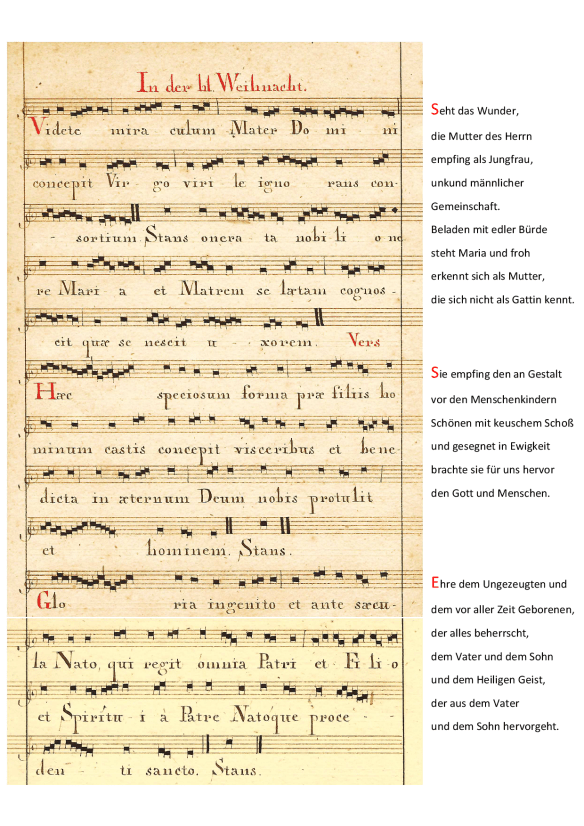 In der hl. Weihnacht.
Videte mira culum Mater Do mi ni
concepit Vir - go viri le igno rans con-
- sortium Stans onera - ta nobi li o ne
re Mari - a et Matrem se lætam cognos -
cit quæ se nescit u - xorem. Vers
Hæc speciosum forma præ filiis ho
minum castis concepit visceribus et bene
dicta in æternum Deum nobis protulit
et hominem. Stans.
Glo ria ingenito et ante sæcu-
la Nato, qui regit omnia Patri et Fi li o
et Spiritu - i à Patre Natoque proce - -
den - ti sancto. Stans.
Seht das Wunder,
die Mutter des Herrn
empfing als Jungfrau,
unkund männlicher
Gemeinschaft.
Beladen mit edler Bürde
steht Maria und froh
erkennt sich als Mutter,
die sich nicht als Gattin kennt.
Sie empfing den an Gestalt
vor den Menschenkindern
Schönen mit keuschem Schoß
und gesegnet in Ewigkeit
brachte sie für uns hervor
den Gott und Menschen.
Ehre dem Ungezeugten und
dem vor aller Zeit Geborenen,
der alles beherrscht,
dem Vater und dem Sohn
und dem Heiligen Geist,
der aus dem Vater
und dem Sohn hervorgeht.